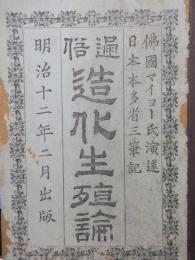 佛國マイヨー氏演述
日本本多省三筆記
通俗
造化生殖論
明治十二年二月出版